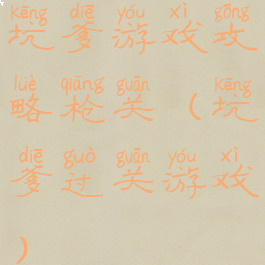 kēng diē yóu xì gōng
坑爹游戏攻
lüè qiāng guān kēng
略枪关(坑
diē guò guān yóu xì
爹过关游戏
)